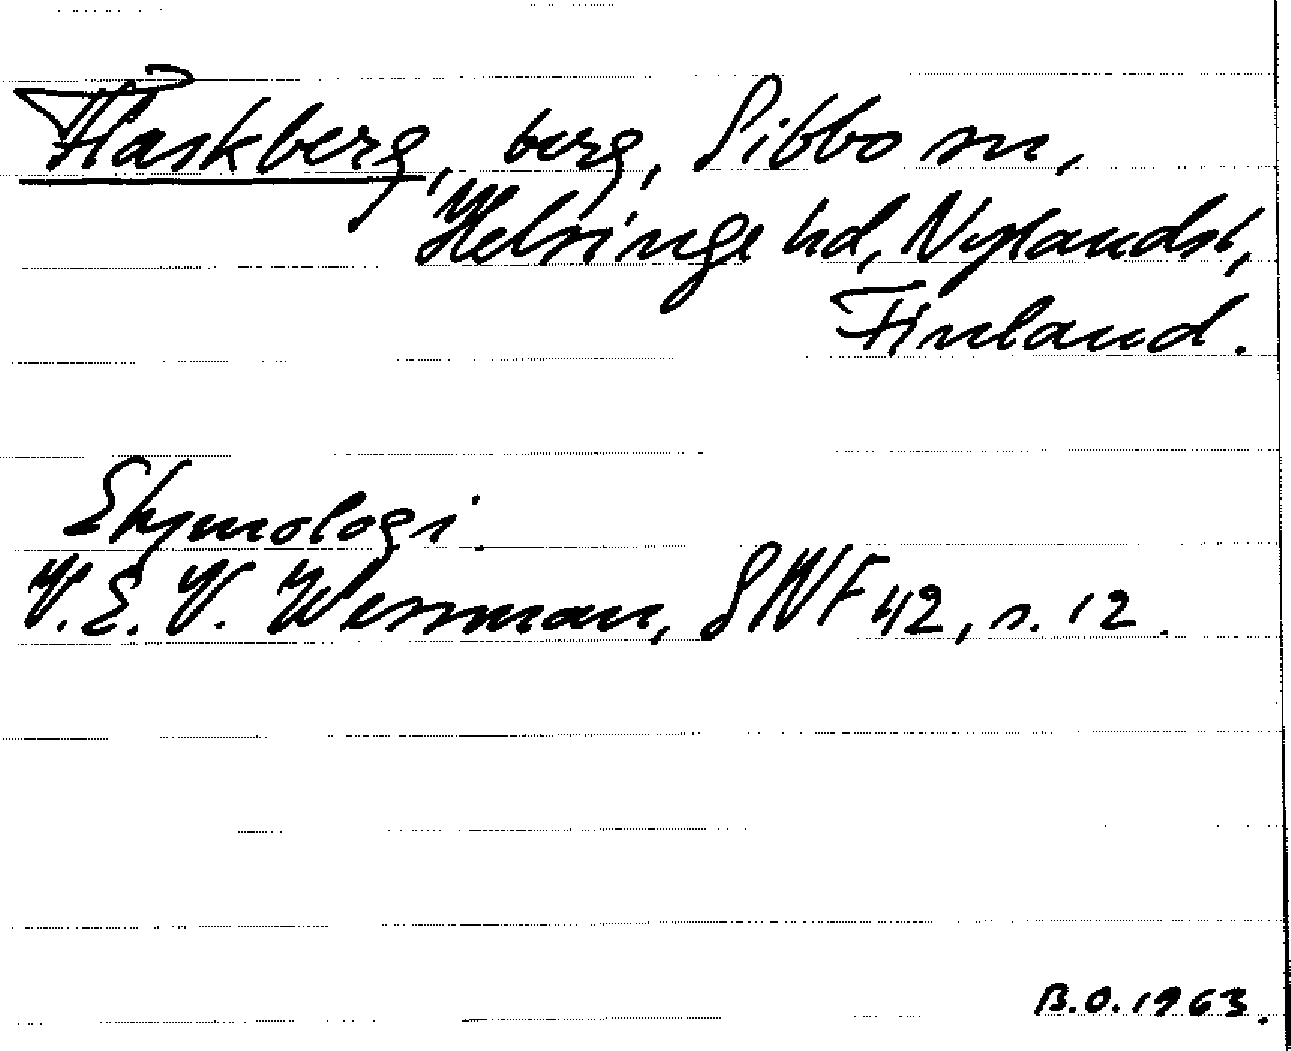 Flaskberg, berg, Sibbo sn,
Helsinge hd, Nylandsl,
Finland.
Etymologi.
V. E. V. Wessman, SNF 42, s. 12.
B.O. 1963.